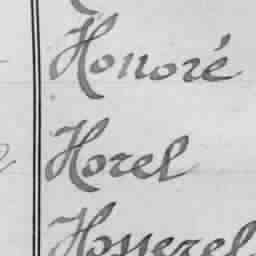 Honoré
Horel
Hosserel